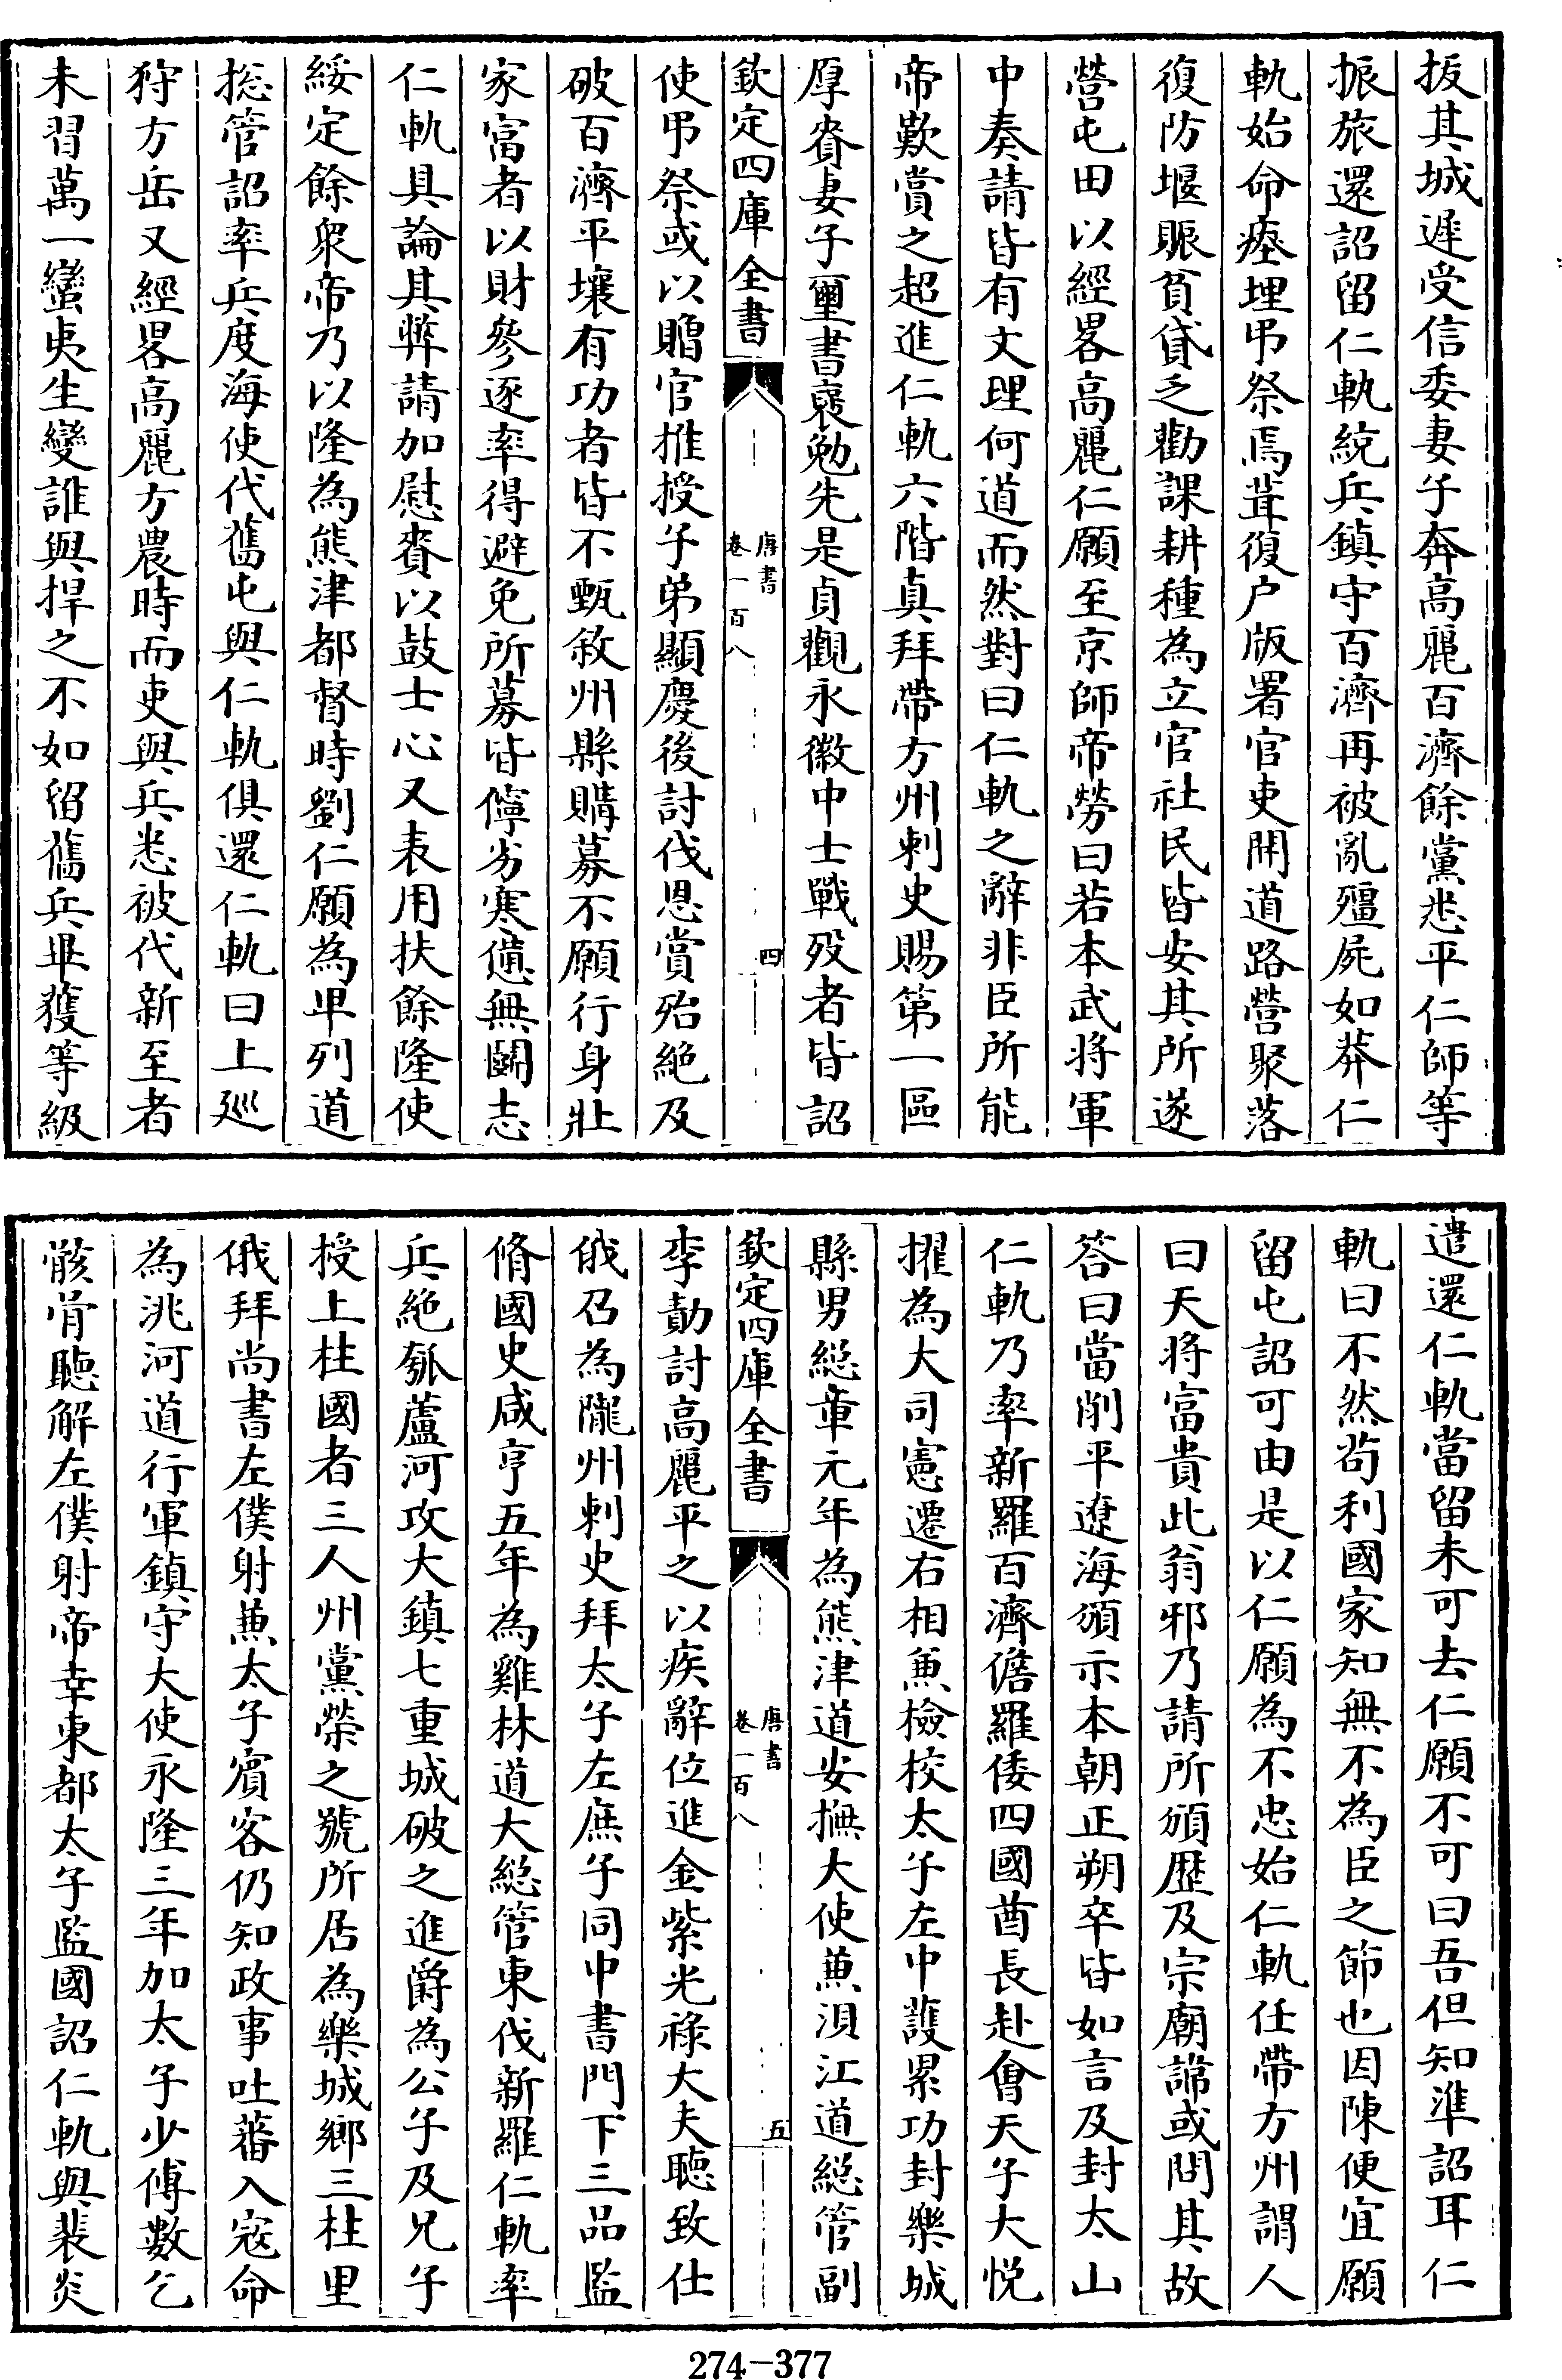 拔其城遲受信委妻子奔高麗百濟餘黨悉平仁師等
振旅還詔留仁軌統兵鎮守百濟再被亂殭屍如莽仁
軌始命瘞埋弔祭焉葺復户版署官吏開道路營聚落
復防堰賑貧貸乏勸課耕種為立官社民皆安其所遂
營屯田以經畧高麗仁願至京師帝勞曰若本武將軍
中奏請皆有文理何道而然對曰仁軌之辭非臣所能
帝歎賞之超進仁軌六階真拜帶方州刺史賜第一區
厚賚妻子璽書褒勉先是貞觀永徽中士戰歿者皆詔
欽定四庫全書
唐書
卷一百八
四
使弔祭或以贈官推授子弟顯慶後討伐恩賞殆絶及
破百濟平壤有功者皆不甄敘州縣購募不願行身壯
家富者以財參逐率得避免所募皆儜劣寒憊無鬬志
仁軌具論其弊請加慰賚以鼓士心又表用扶餘隆使
綏定餘衆帝乃以隆為熊津都督時劉仁願為卑列道
捴管詔率兵度海使代舊屯與仁軌俱還仁軌曰上廵
狩方岳又經畧高麗方農時而吏與兵悉被代新至者
未習萬一蠻夷生變誰與捍之不如留舊兵畢穫等級
遣還仁軌當留未可去仁願不可曰吾但知準詔耳仁
軌曰不然苟利國家知無不為臣之節也因陳便宜願
留屯詔可由是以仁願為不忠始仁軌任帶方州謂人
曰天將富貴此翁邪乃請所頒歴及宗廟諱或問其故
答曰當削平遼海頒示本朝正朔卒皆如言及封太山
仁軌乃率新羅百濟儋羅倭四國酋長赴㑹天子大悦
擢為大司憲遷右相兼檢校太子左中護累功封樂城
縣男緫章元年為熊津道安撫大使兼浿江道緫管副
欽定四庫全書
唐書
卷一百八
五
李勣討高麗平之以疾辭位進金紫光祿大夫聽致仕
俄召為隴州刺史拜太子左庶子同中書門下三品監
脩國史咸亨五年為雞林道大緫管東伐新羅仁軌率
兵絶瓠蘆河攻大鎮七重城破之進爵為公子及兄子
授上柱國者三人州黨榮之號所居為樂城鄉三柱里
俄拜尚書左僕射兼太子賓客仍知政事吐蕃入寇命
為洮河道行軍鎮守大使永隆三年加太子少傅數乞
骸骨聽解左僕射帝幸東都太子監國詔仁軌與裴炎
274-377